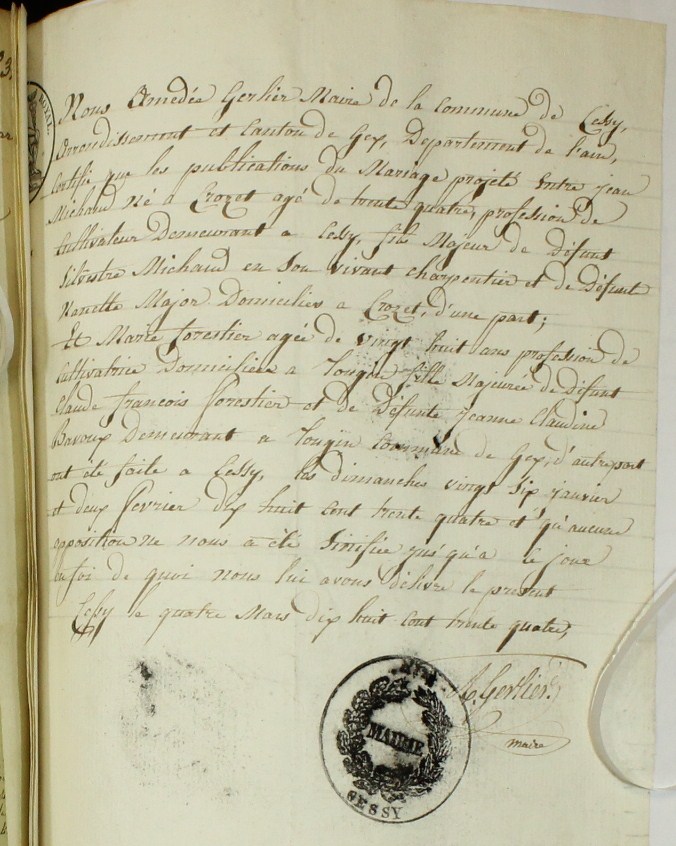 Nous Amedée Gerlier Maire de la Commune de Cessy,
Arrondissement et Canton de Gex, Departement de l'ain,
Certifie que les publications du Mariage projeté Entre jean
Michaud Né a Crozet agé de trente quatre, profession de
Cultivateur Demeurant a Cessy, fils Majeur de Défunt
Silvestre Michaud en Son vivant charpentier et de Défunte
Nanette Major Domiciliés a Crozet, d'une part;
Et Marie forestier agée de vingt huit ans profession de
Cultivatrice Domiciliée a Tougin fille Majeure de Défunt
Claude françois forestier et de Défunte Jeanne Claudine
Bavoux Demeurant a Tougin Commune de Gex, d'autre part
ont été faite a Cessy, les dimanches vingt Six janvier
et deux fevrier dix huit cent trente quatre et qu'aucune
opposition ne nous a été Sinifiée jus'qu'a ce jour
en foi de quoi nous lui avons délivre le present
Cessy le quatre Mars dix huit cent trente quatre,
A. Gerlier.
maire
MAIRIE
CESSY
ROYAL.